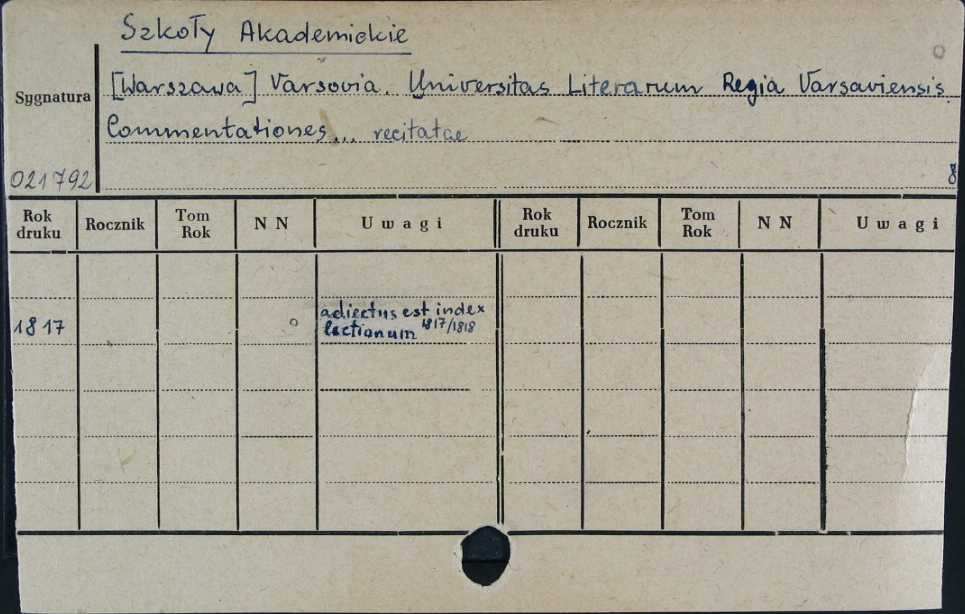 Szkoły Akademickie
Sygnatura
[Warszawa] Varsovia. Universitas Literarum Regia Varsaviensis.
Commentationes... recitatae
021792
8
Rok druku Rocznik Tom Rok N N Uwagi Rok druku Rocznik Tom Rok N N Uwagi
1817 adiectus est index
lectionum 1817/1818